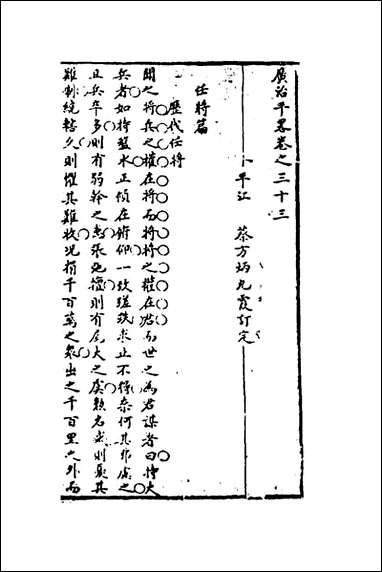 廣治平畧卷之三十三
平江 蔡方炳九霞訂定
任將篇
歷代任將
聞之將兵之權在將而將將之權在君而世之爲君謀者曰持大
兵者如持盤水正傾在俯仰一致蹉跌求止不得奈何其弗慮之
且兵卒多則有弱幹之患張弛擅則有尾大之虞熟名或則憂其
難制統轄久則懼其難收况捐千百萬之衆出之千百里之外而